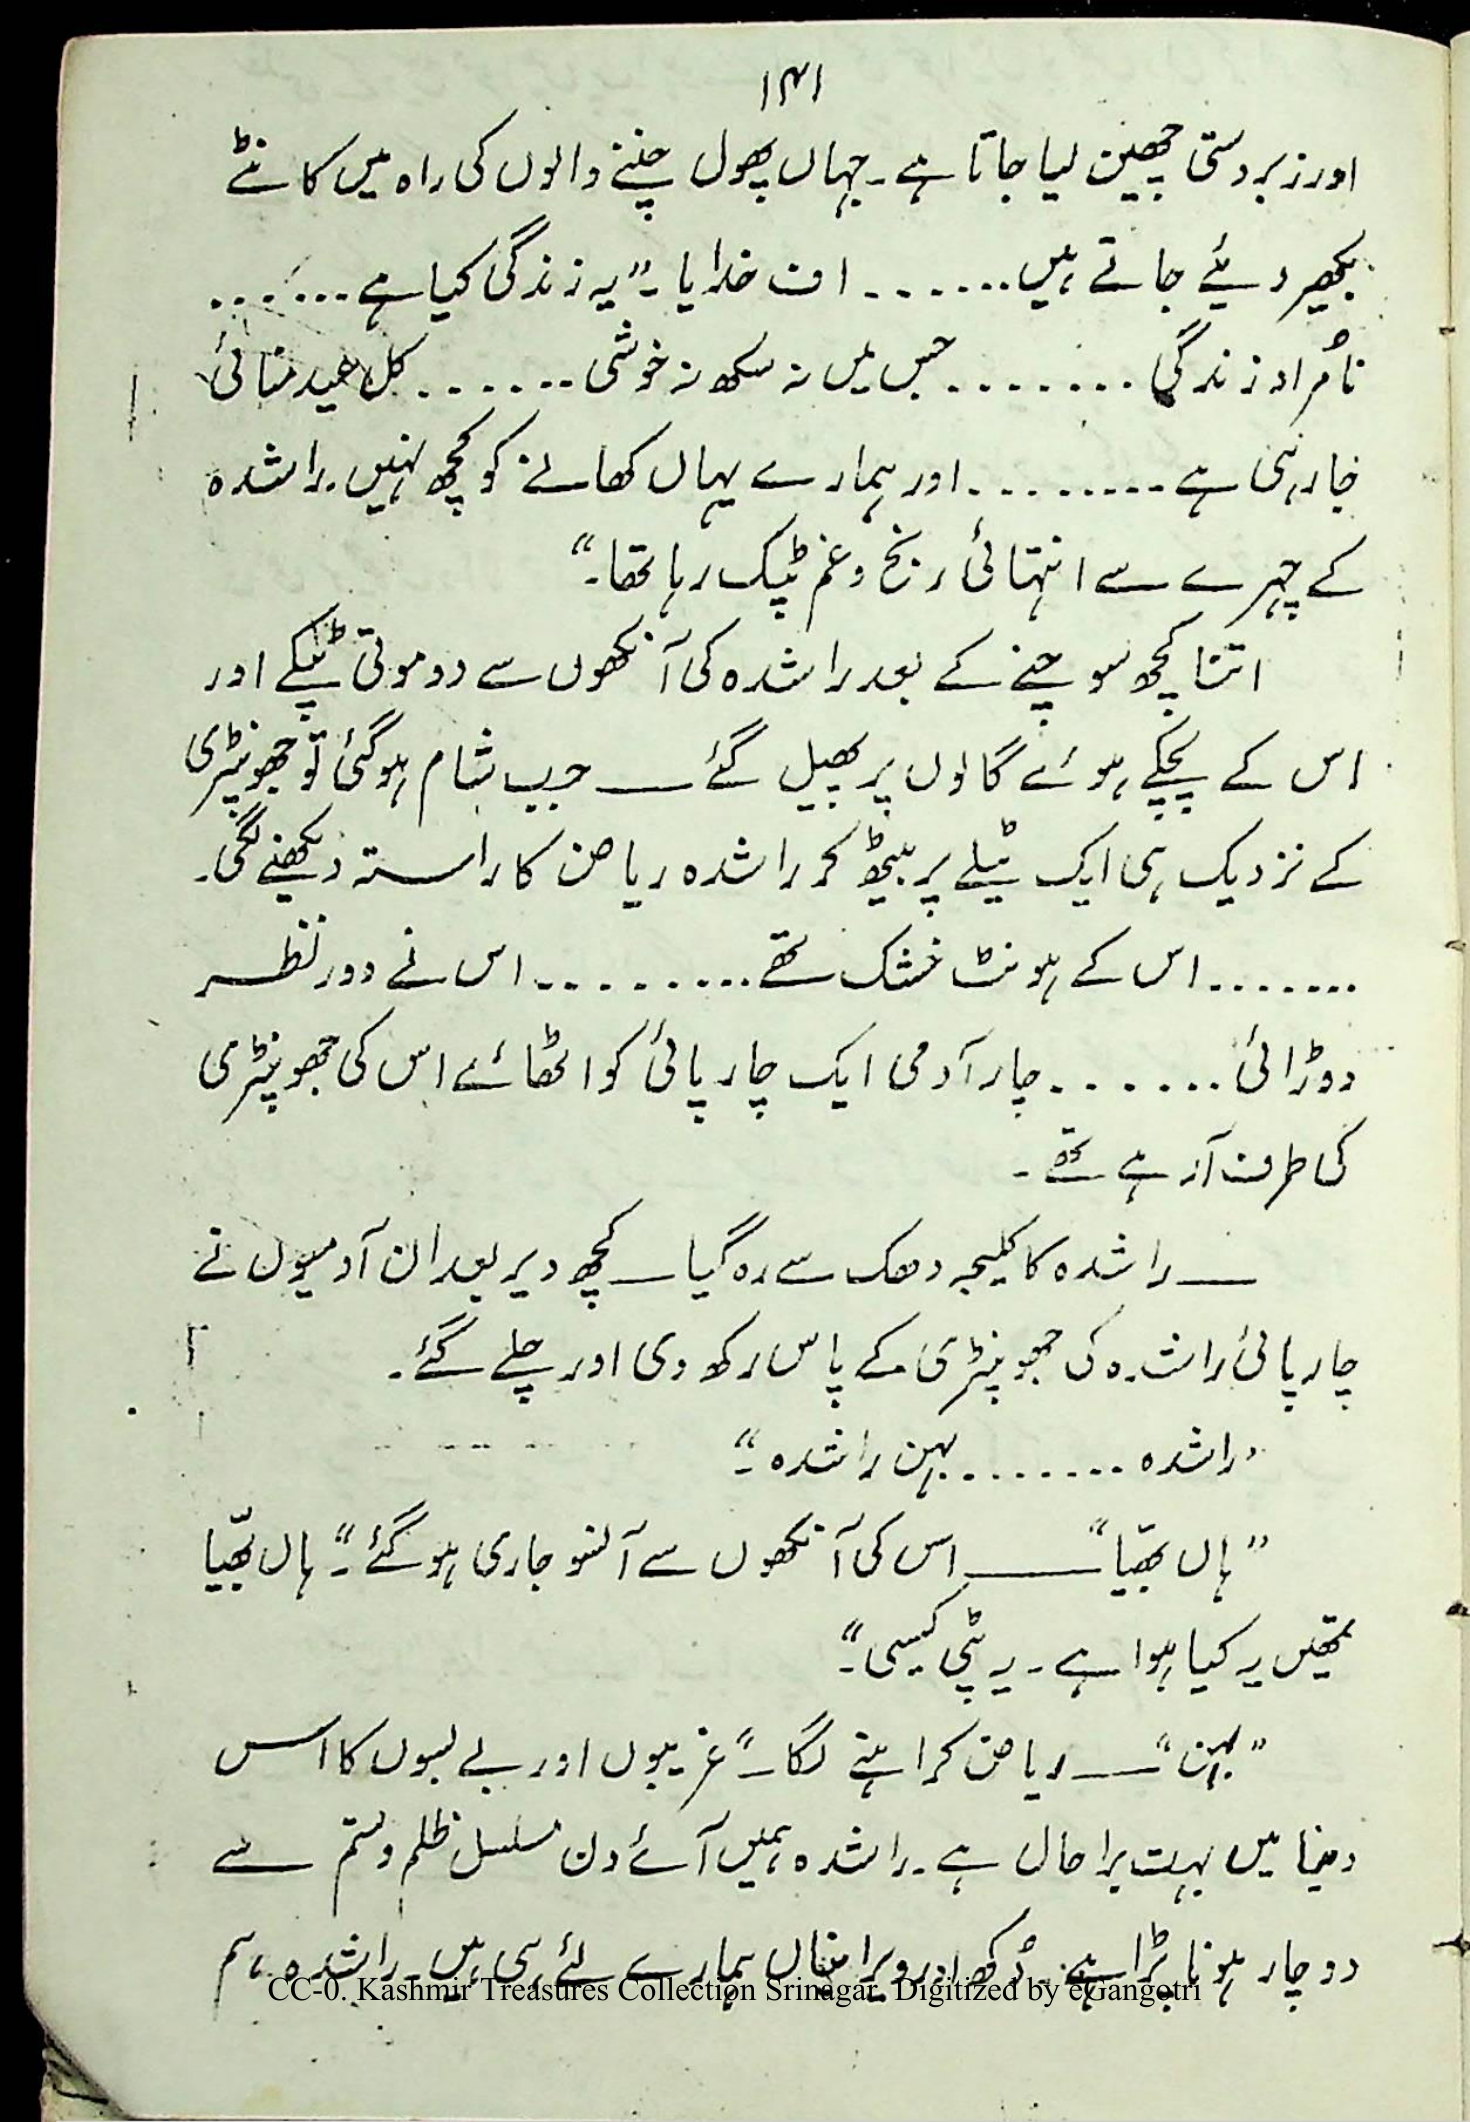 ۱۴۱
اور زبردستی چھین لیا جاتا ہے۔ جہاں پھول چننے والوں کی راہ میں کانٹے
بکھیر دیئے جاتے ہیں۔۔۔۔۔۔۔ اف خدایا۔" یہ زندگی کیا ہے۔۔۔۔۔۔
نامُراد زندگی ۔۔۔۔۔۔۔۔ جس میں نہ سکھ نہ خوشی ۔۔۔۔۔۔۔ کل عید منائی
جا رہی ہے ۔۔۔۔۔۔۔۔۔ اور ہمارے یہاں کھانے کو کچھ نہیں۔ راشدہ
کے چہرے سے انتہائی رنج و غم ٹپک رہا تھا۔"
اتنا کچھ سوچنے کے بعد راشدہ کی آنکھوں سے دو موتی ٹپکے اور
اس کے پچکے ہوئے گالوں پر پھیل گئے ــــ جب شام ہوگئی تو جھونپڑی
کے نزدیک ہی ایک ٹیلے پر بیٹھ کر راشدہ ریاض کا راستہ دیکھنے لگی۔
۔۔۔۔۔۔۔ اس کے ہونٹ خشک تھے ۔۔۔۔۔۔۔۔۔ اس نے دور نظر
دوڑائی ۔۔۔۔۔۔۔ چار آدمی ایک چارپائی کو اٹھائے اس کی جھونپڑی
کی طرف آرہے تھے۔
ــــ راشدہ کا کلیجہ دھک سے رہ گیا ــــ کچھ دیر بعد ان آدمیوں نے
چارپائی راشدہ کی جھونپڑی کے پاس رکھ دی اور چلے گئے۔
"راشدہ ۔۔۔۔۔۔۔۔ بہن راشدہ۔"
"ہاں بھیّا" ــــــ اس کی آنکھوں سے آنسو جاری ہوگئے۔" ہاں بھیّا
تمھیں یہ کیا ہوا ہے۔ یہ پٹی کیسی۔"
"بہن" ــــ ریاض کراہنے لگا۔" غریبوں اور بے بسوں کا اس
دنیا میں بہت برا حال ہے۔ راشدہ ہمیں آئے دن مسلسل ظلم و ستم سے
دوچار ہونا پڑا ہے۔ دُکھ اور ویرانیاں ہمارے لئے ہی ہیں۔ راشدہ ہم
CC-0. Kashmir Treasures Collection Srinagar. Digitized by eGangotri